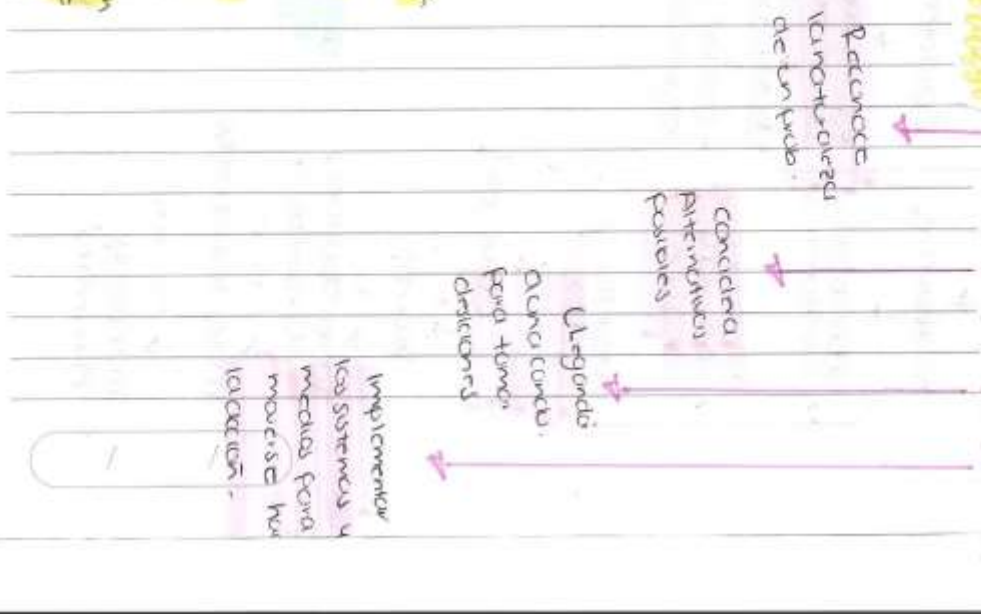 Reconoce
la naturaleza
de un prob.
Concidera
Alternativas
posibles
Llegando
a una condi.
para tomar
desiciones
Implementar
los sistemas y
medios para
moverse ha
la acción.